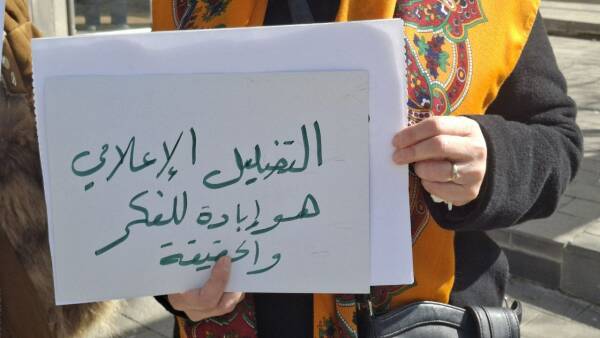 التضليل الإعلامي
هو إبادة للفكر
والحقيقة